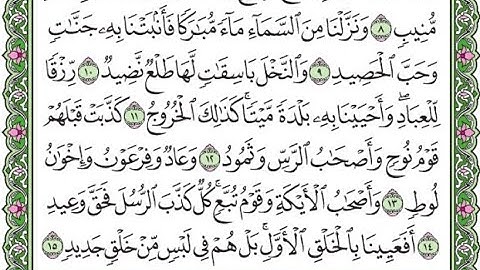 مُّنِيبٍ ٨ وَنَزَّلْنَا مِنَ السَّمَآءِ مَآءً مُّبَٰرَكًا فَأَنۢبَتْنَا بِهِۦ جَنَّٰتٍ
وَحَبَّ الْحَصِيدِ ٩ وَالنَّخْلَ بَاسِقَٰتٍ لَّهَا طَلْعٌ نَّضِيدٌ ١٠ رِّزْقًا
لِّلْعِبَادِ ۖ وَأَحْيَيْنَا بِهِۦ بَلْدَةً مَّيْتًا ۚ كَذَٰلِكَ الْخُرُوجُ ١١ كَذَّبَتْ قَبْلَهُمْ
قَوْمُ نُوحٍ وَأَصْحَٰبُ الرَّسِّ وَثَمُودُ ١٢ وَعَادٌ وَفِرْعَوْنُ وَإِخْوَٰنُ
لُوطٍ ١٣ وَأَصْحَٰبُ الْأَيْكَةِ وَقَوْمُ تُبَّعٍ ۚ كُلٌّ كَذَّبَ الرُّسُلَ فَحَقَّ وَعِيدِ
١٤ أَفَعَيِينَا بِالْخَلْقِ الْأَوَّلِ ۚ بَلْ هُمْ فِى لَبْسٍ مِّنْ خَلْقٍ جَدِيدٍ ١٥